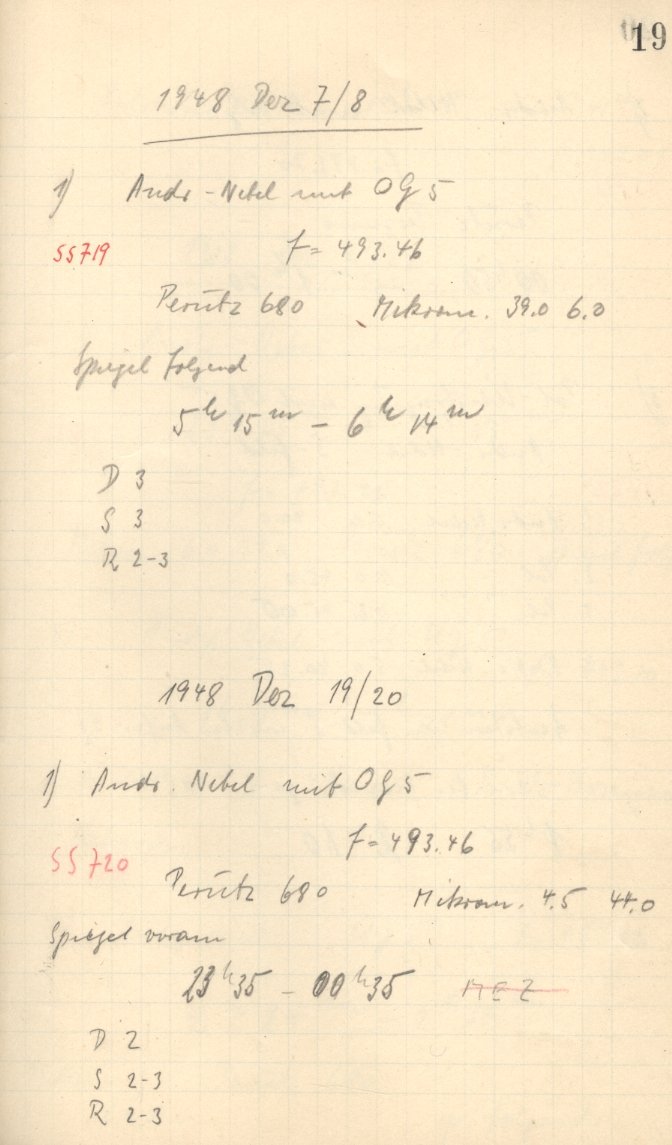 19
1948 Dez 7/8
1) Andr-Nebel mit OG 5
SS719
f = 493.46
Perutz 680 Mikrom. 39.0 6.0
Spiegel folgend
5h 15m – 6h 14m
D 3
S 3
R 2-3
1948 Dez 19/20
1) Andr. Nebel mit OG 5
f = 493.46
SS720
Perutz 680 Mikrom. 4.5 44.0
Spiegel voran
23h35 – 00h35 MEZ
D 2
S 2-3
R 2-3